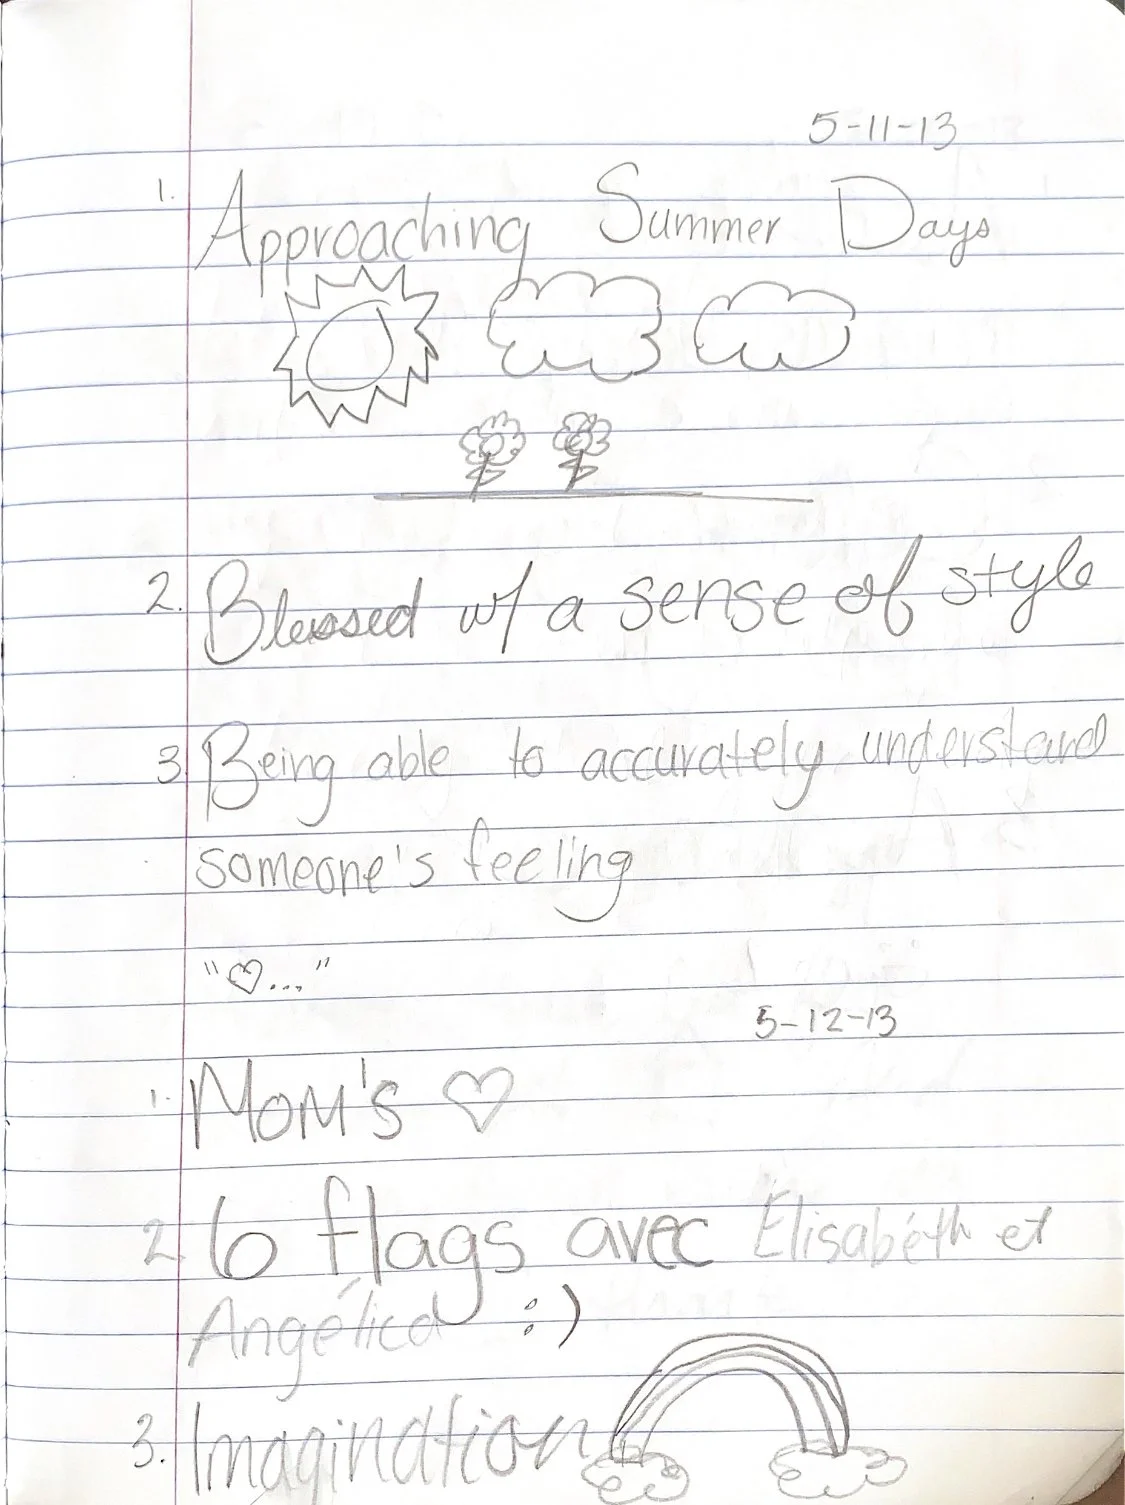 5-11-13
1. Approaching Summer Days
2. Blessed w/ a sense of style
3. Being able to accurately understand
someone's feeling
"♡..."
5-12-13
1. Mom's ♡
2. 6 flags avec Élisabéth et
Angélica :)
3. Imagination